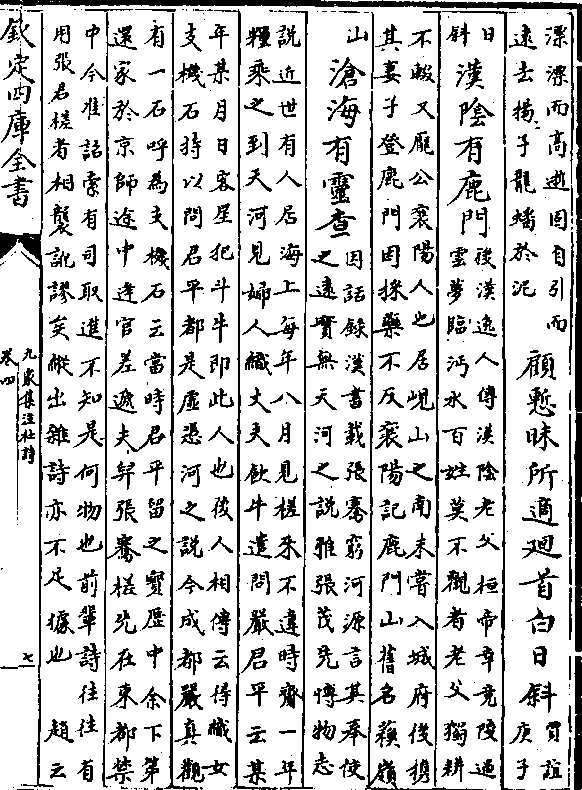 漂漂而高逝固自引而
遠去揚子龍蟠於泥
顧慙昧所適廻首白日斜
賈誼
庚子
日
斜
漢陰有鹿門
後漢逸人傳漢陰老父桓帝幸竟陵過
雲夢臨沔水百姓莫不觀者老父獨耕
不輟又龐公襄陽人也居峴山之南未嘗入城府後携
其妻子登鹿門因採藥不反襄陽記鹿門山舊名蘇嶺
山
滄海有靈查
因話錄漢書載張騫窮河源言其奉使
之遠實無天河之說雅張茂先博物志
說近世有人居海上每年八月見槎来不違時齎一年
糧乘之到天河見婦人織丈夫飲牛遣問嚴君平云某
年某月日客星犯斗牛即此人也後人相傳云得織女
支機石持以問君平都是虛憑河之說今成都嚴真觀
有一石呼為支機石云當時君平留之寳歷中余下第
還家於京師途中逢官差遞夫舁張騫槎先在東都禁
中今准詔索有司取進不知是何物也前輩詩往往有
用張君槎者相襲訛謬矣縱出雜詩亦不足據也 趙云
欽定四庫全書
九家集注杜詩
卷四
七